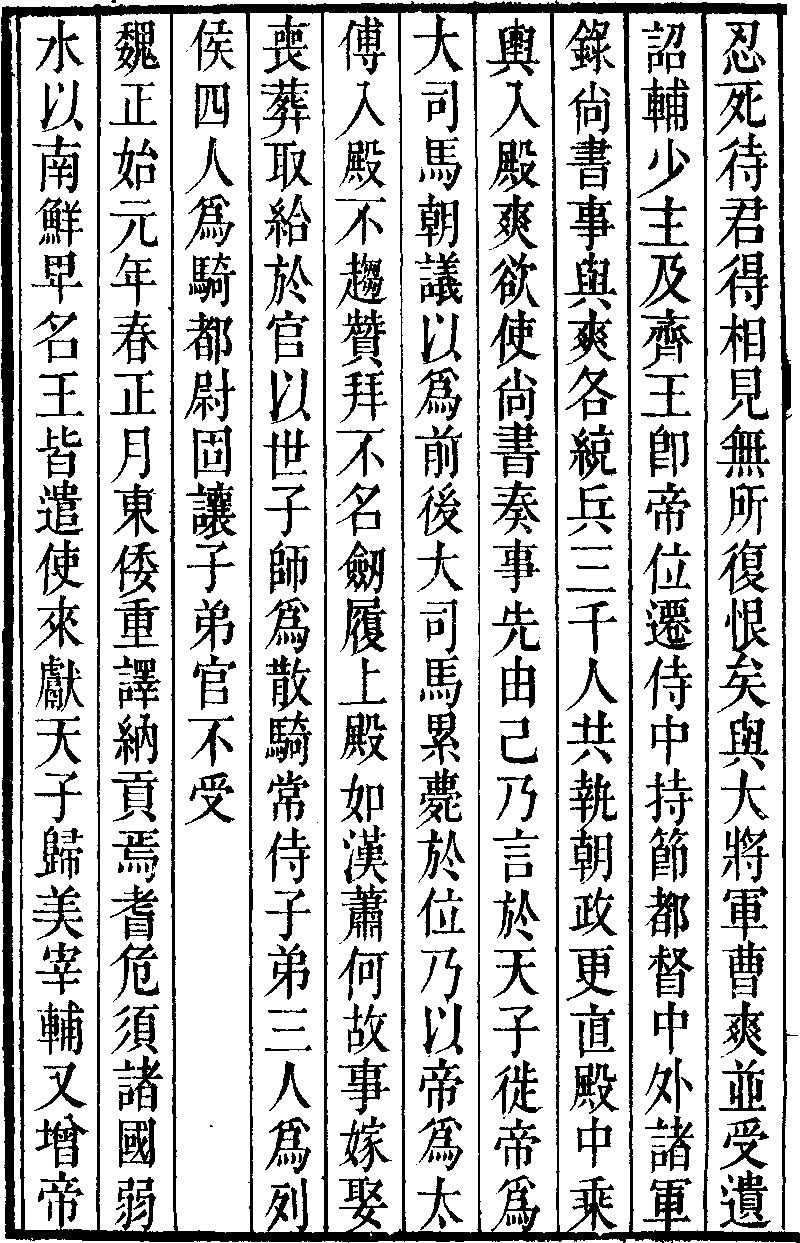 忍死待君得相見無所復恨矣與大將軍曹爽並受遺
詔輔少主及齊王卽帝位遷侍中持節都督中外諸軍
錄尙書事與爽各統兵三千人共執朝政更直殿中乘
輿入殿爽欲使尙書奏事先由己乃言於天子徙帝爲
大司馬朝議以爲前後大司馬累薨於位乃以帝爲太
傅入殿不趨贊拜不名劒履上殿如漢蕭何故事嫁娶
喪葬取給於官以世子師爲散騎常侍子弟三人爲列
侯四人爲騎都尉固讓子弟官不受
魏正始元年春正月東倭重譯納貢焉耆危須諸國弱
水以南鮮卑名王皆遣使來獻天子歸美宰輔又增帝